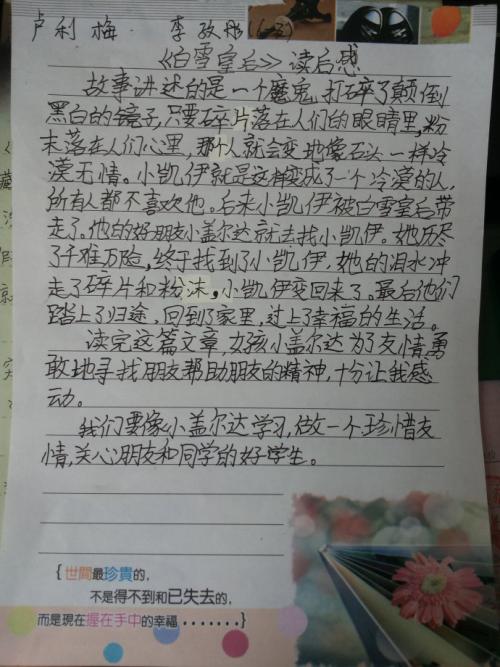 卢利梅 李政彤(6-3)
《白雪皇后》读后感
故事讲述的是一个魔鬼,打碎了颠倒
黑白的镜子,只要碎片落在人们的眼睛里,粉
末落在人们心里,那个人就会变地像石头一样冷
漠无情。小凯伊就是这样变成了一个冷漠的人,
所有人都不喜欢他。后来小凯伊被白雪皇后带
走了。他的好朋友小盖尔达就去找小凯伊。她历尽
了千难万险,终于找到了小凯伊,她的泪水冲
走了碎片和粉沫,小凯伊变回来了。最后他们
踏上了归途,回到了家里,过上了幸福的生活。
读完这篇文章,女孩小盖尔达为了友情,勇
敢地寻找朋友帮助朋友的精神,十分让我感
动。
我们要像小盖尔达学习,做一个珍惜友
情,关心朋友和同学的好学生。
{世間最珍貴的,
不是得不到和已失去的,
而是現在握在手中的幸福.......}